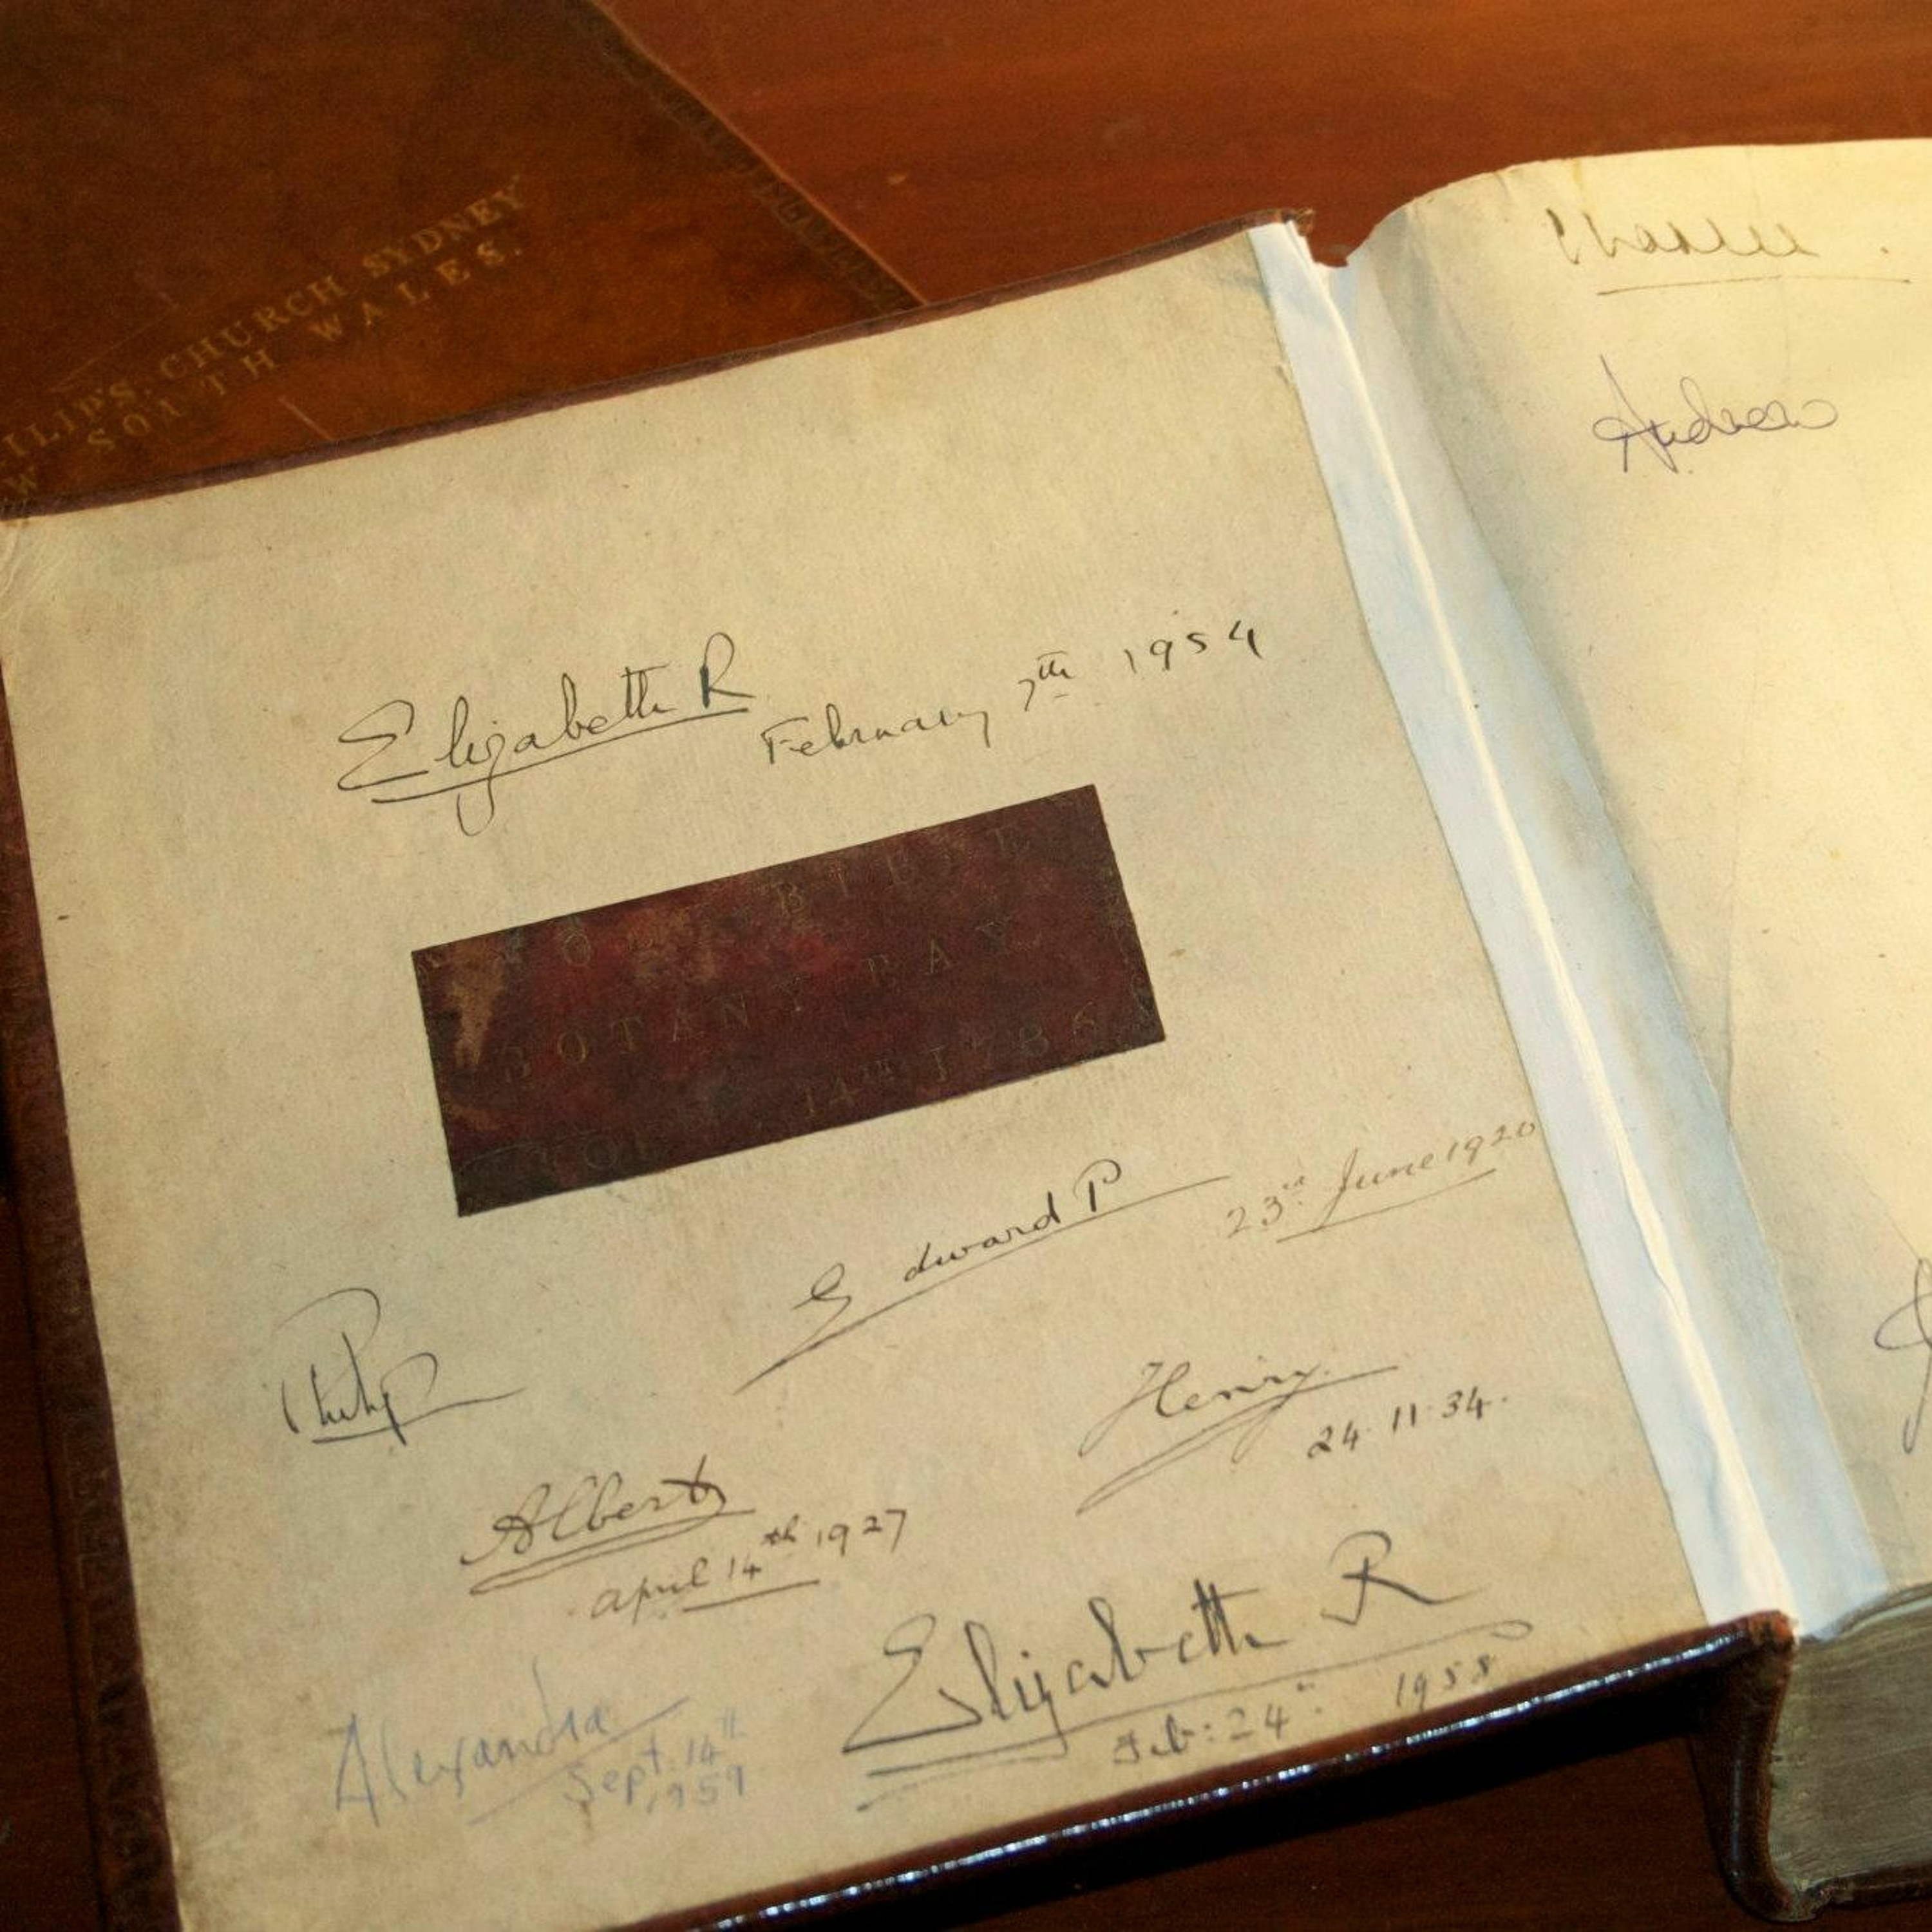 CHURCH SYDNEY
SOUTH WALES.
Elizabeth R
February 7th 1954
BIBLE
BOTANY BAY
14th 1786
Edward P
23rd June 1920
Philip
Henry.
24.11.34.
Albert
April 14th 1927
Elizabeth R
Feb: 24th 1958
Alexandra
Sept. 14th
1959
Charles.
Andrew